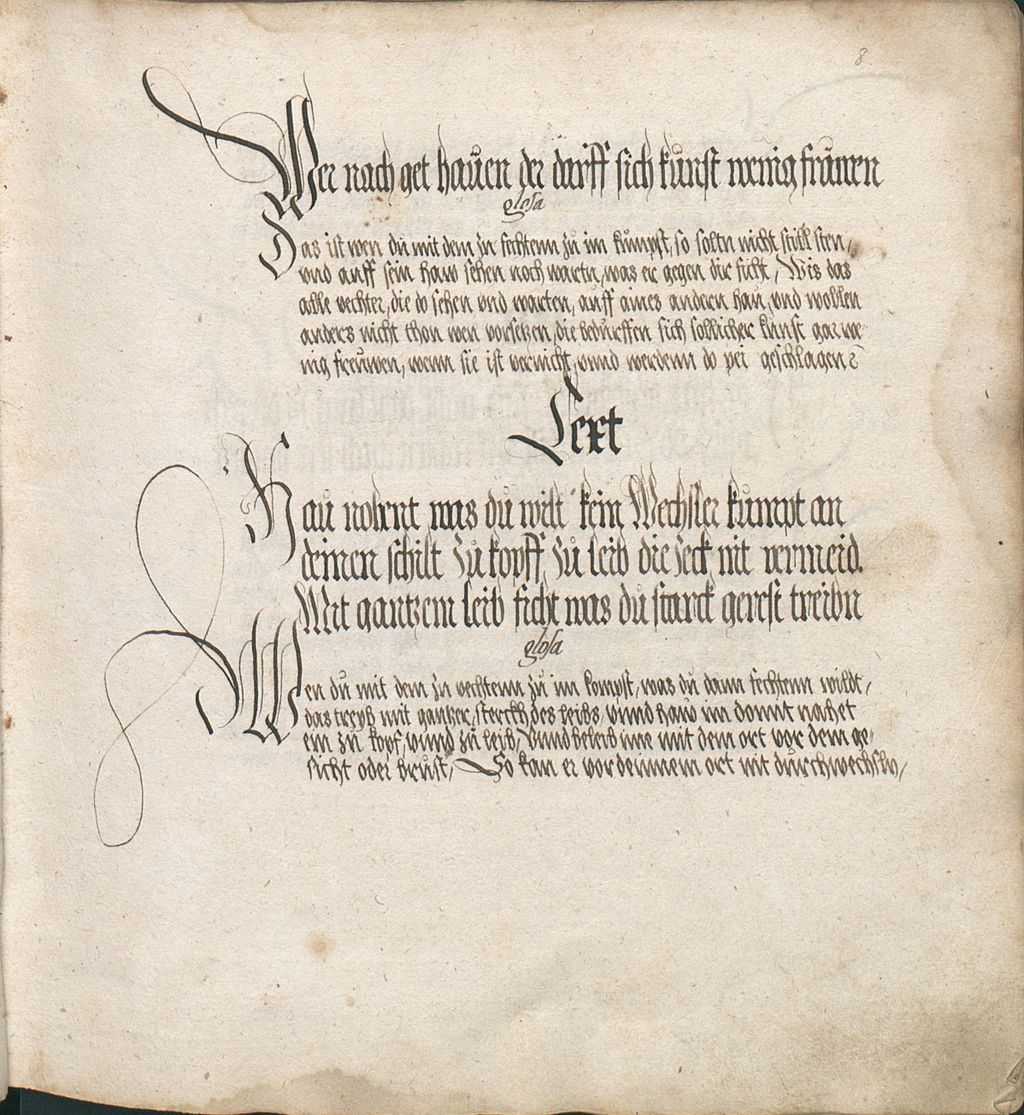 8
Wer nach get hauen der darff sich kunst wenig frauen
glosa
Das ist wen du mit dem zu fechtenn zu im kumpst, so soltu nicht still sten,
vnd auff sein haw sehen noch wartn, was er gegen dir ficht, Wis das
alle vechter, die do sehen vnd warten, auff aines andern hau, vnd wollen
anders nicht thon wen vorsetzen, die bedurffen sich sollicher kunst gar we-
nig freuwen, wenn sie ist vernicht, vnnd werdenn do pei geschlagen
Text
Hau nohent was du wilt kein Wechsler kumpt an
deinen schilt Zu kopff Zu leib die Zeck nit vermeid.
Mit gantzem leib ficht was du starck gerest treibn
glosa
Wen du mit dem zu vechtenn zu im kompst, was du dann fechtenn wildt,
das treyb mit gantzer, sterckh des leibs, vnnd haw im domit nahet
ein zu kopf, vnnd zu leib, Vnnd beleib ime mit dem ort vor dem ge-
sicht oder brust, So kan er vor deinnem ort nit durchwechsln,